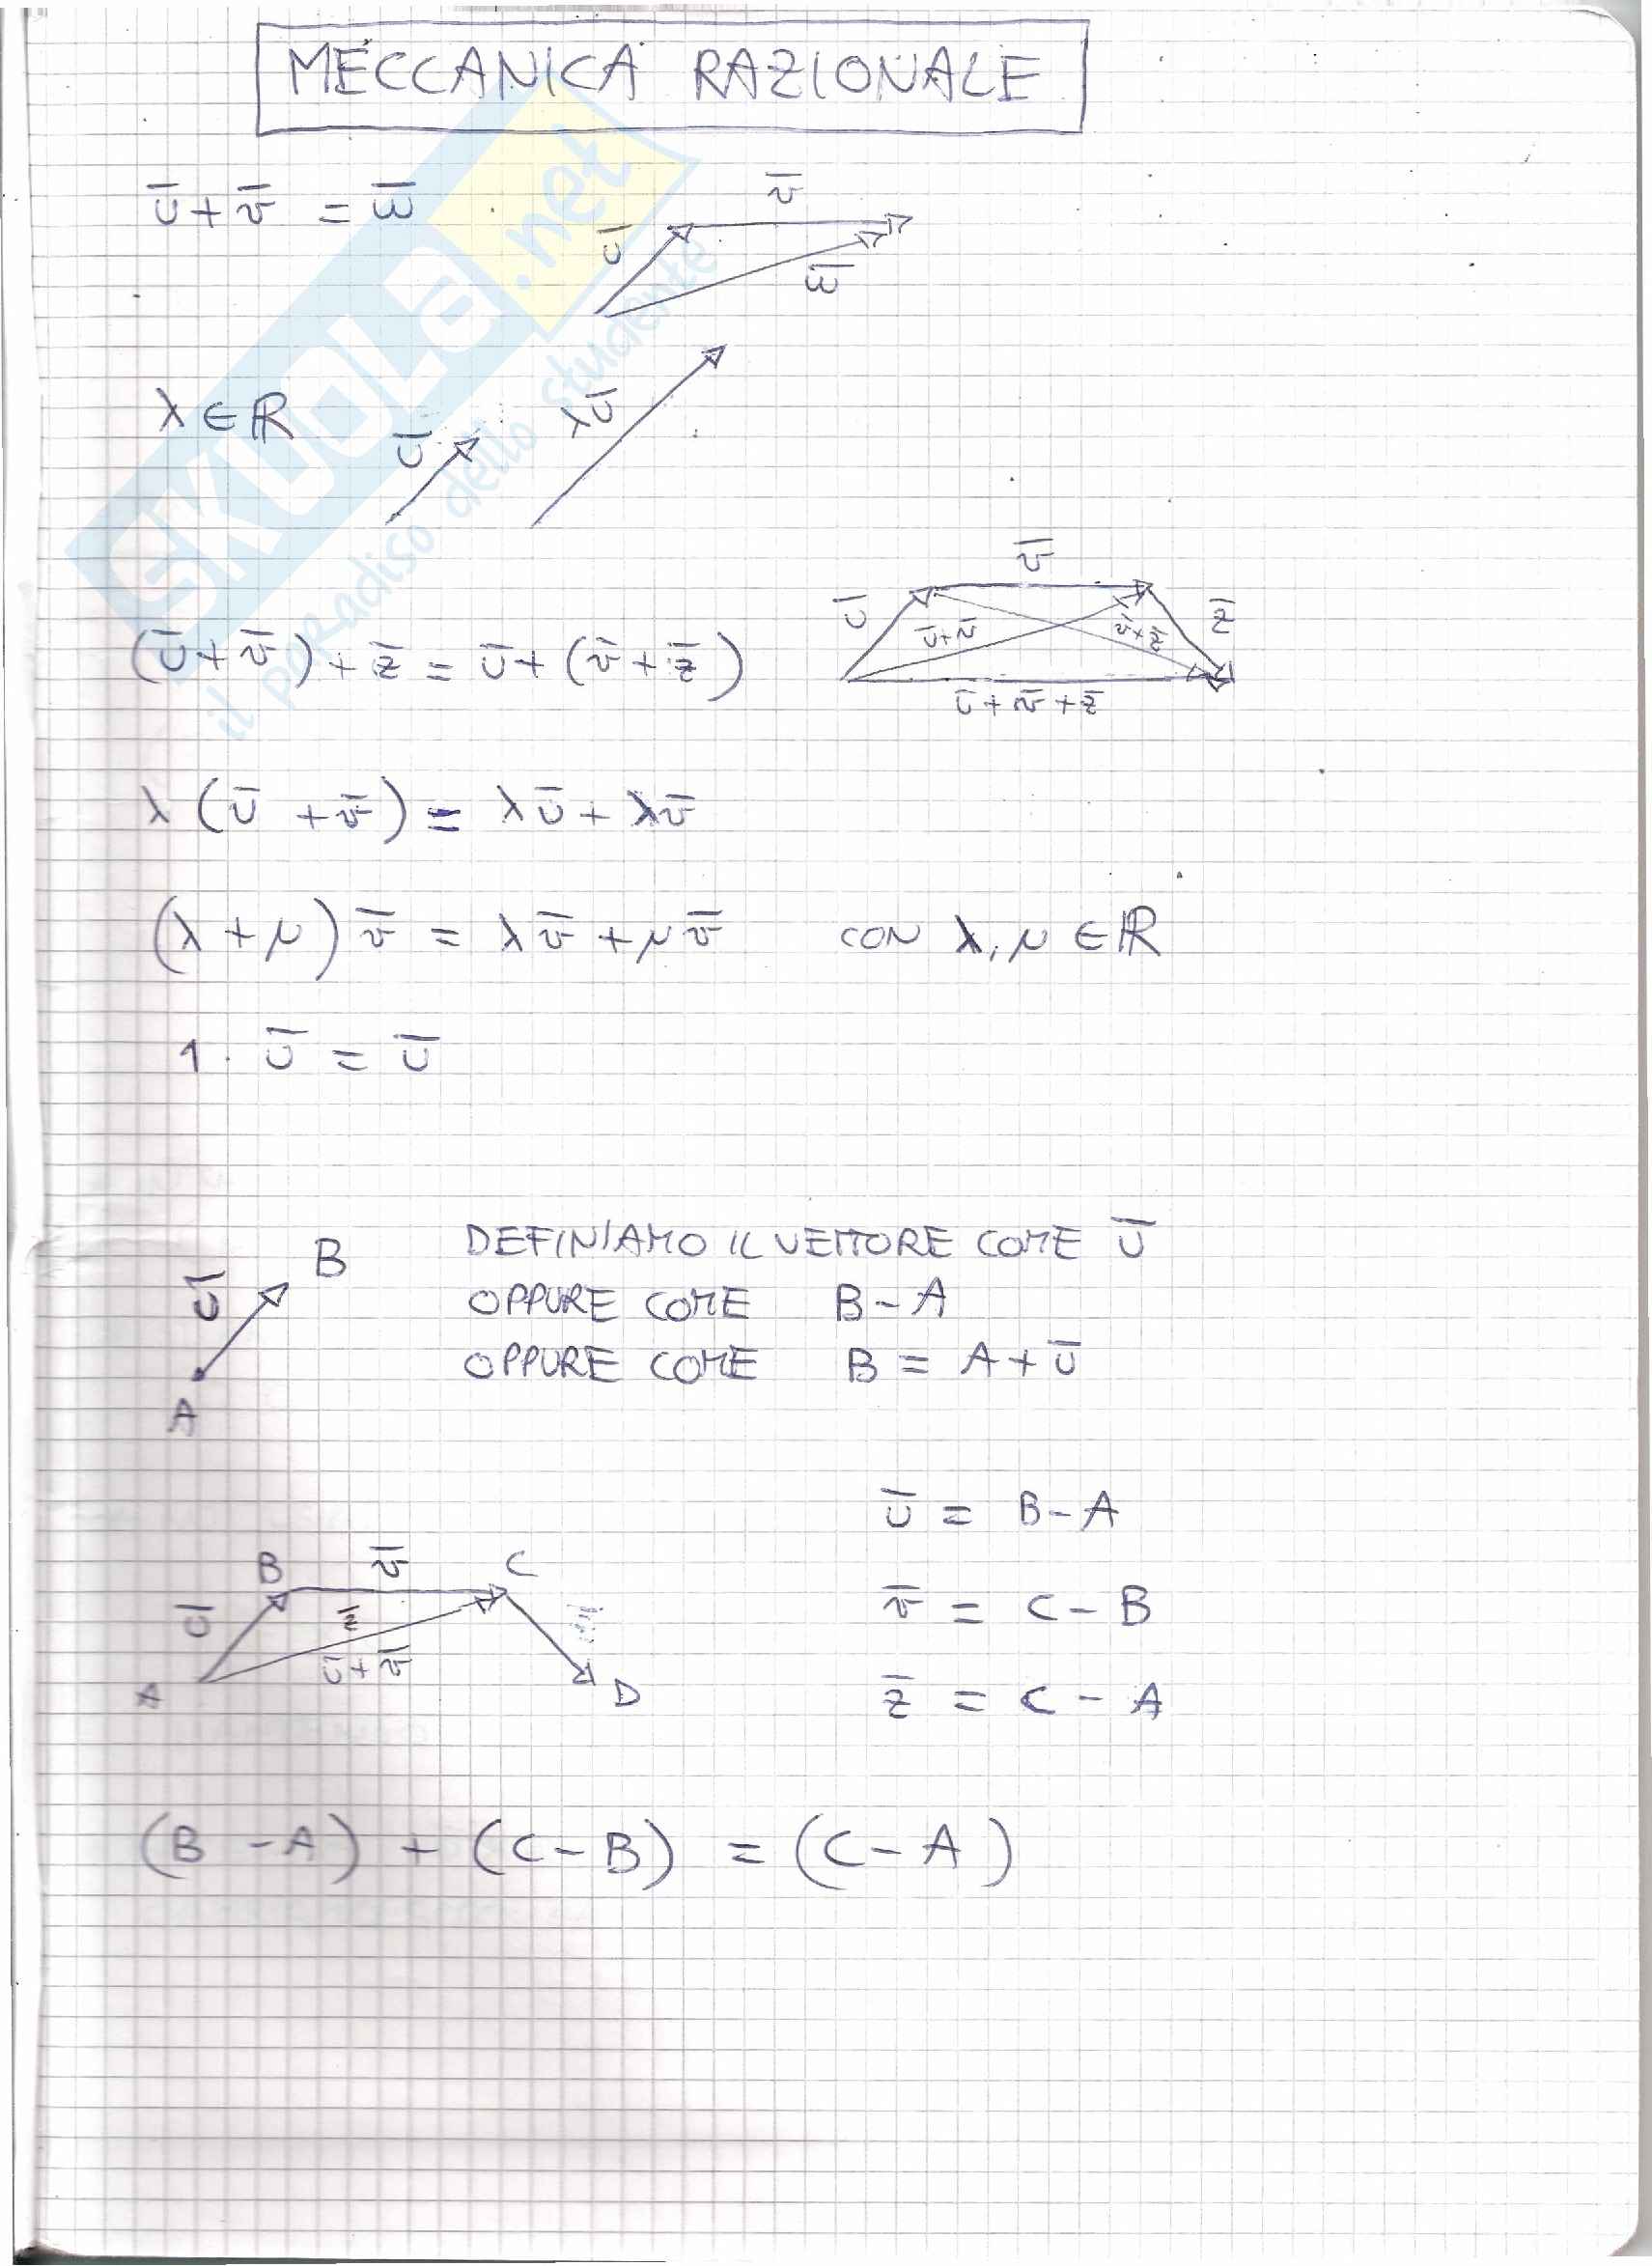 MECCANICA RAZIONALE
SKUOLA.net
il paradiso dello studente
ū + v̄ = w̄
ū
v̄
w̄
λ ∈ ℝ
ū
λū
(ū + v̄) + z̄ = ū + (v̄ + z̄)
ū
v̄
z̄
ū+v̄
v̄+z̄
ū + v̄ + z̄
λ (ū + v̄) = λū + λv̄
(λ + μ) v̄ = λv̄ + μv̄ CON λ, μ ∈ ℝ
1 · ū = ū
ū
A
B
DEFINIAMO IL VETTORE COME ū
OPPURE COME B - A
OPPURE COME B = A + ū
A
ū
B
v̄
C
z̄
ū + v̄
D
ū = B - A
v̄ = C - B
z̄ = C - A
(B - A) + (C - B) = (C - A)